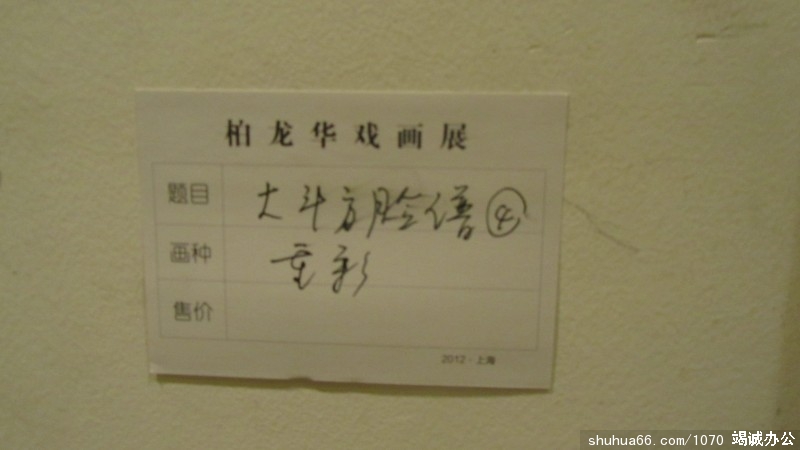 柏龙华戏画展
题目 大斗方脸谱④
画种 重彩
售价
2012·上海
shuhua66.com/1070 竭诚办公